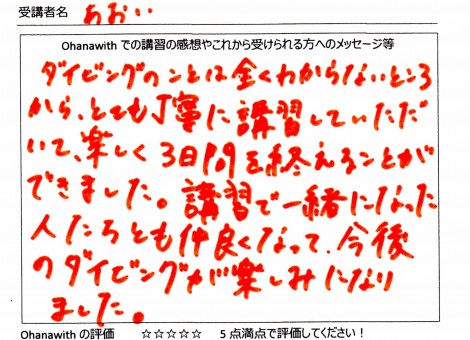 受講者名 あおい
Ohanawith での講習の感想やこれから受けられる方へのメッセージ等
ダイビングのことは全くわからないところ
から、とても丁寧に講習していただ
いて、楽しく3日間を終えることが
できました。講習で一緒になった
人たちとも仲良くなって、今後
のダイビングが楽しみになり
ました。
Ohanawith の評価 ☆☆☆☆☆ 5点満点で評価してください！